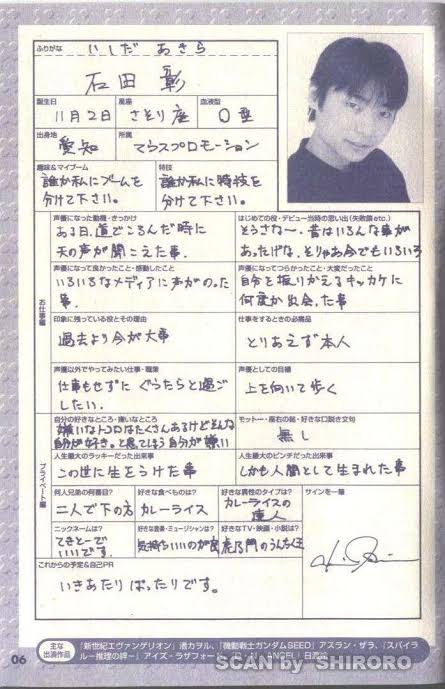 ふりがな いしだ あきら
石田 彰
誕生日 11月2日 星座 さそり座 血液型 O型
出身地 愛知 所属 てらスプロモーション
趣味&マイブーム
誰か私にブームを
分けて下さい。
特技
誰か私に特技を
分けて下さい。
お仕事編
声優になった動機・きっかけ
ある日、道でころんだ時に
天の声が聞こえた事.
はじめての役・デビュー当時の思い出(失敗談etc.)
そうさな〜. 昔はいろんな事が
あったげな. そりゃあ今でもいろいろ
声優になって良かったこと・感動したこと
いろいろなメディアに声がのった
事.
声優になってつらかったこと・大変だったこと
自分を振りかえるキッカケに
何度か出会った事
印象に残っている役とその理由
過去より今が大事
仕事をするときの必需品
とりあえず本人
声優以外でやってみたい仕事・職業
仕事もせずに ぐうたらと過ご
したい.
声優としての目標
上を向いて歩く
プライベート編
自分の好きなところ・嫌いなところ
嫌いなトコロはたくさんあるけどそんな
自分が好き。と思ってしまう自分が嫌い
モットー・座右の銘・好きな口説き文句
無し
人生最大のラッキーだった出来事
この世に生をうけた事
人生最大のピンチだった出来事
しかも人間として生まれた事
何人兄弟の何番目?
二人で下の方
好きな食べものは?
カレーライス
好きな異性のタイプは?
カレーライスの
達人
サインを一筆
ニックネームは?
てきとーで
いいです.
好きな音楽・ミュージシャンは?
気持ちいいのが良
好きなTV・映画・小説は?
これからの予定&自己PR
いきあたりばったりです。
06
主な
出演作品
『新世紀エヴァンゲリオン』渚カヲル、『機動戦士ガンダムSEED』アスラン・ザラ、『スパイラ
ル〜推理の絆〜』アイズ・ラザフォード
SCAN by SHIRORO